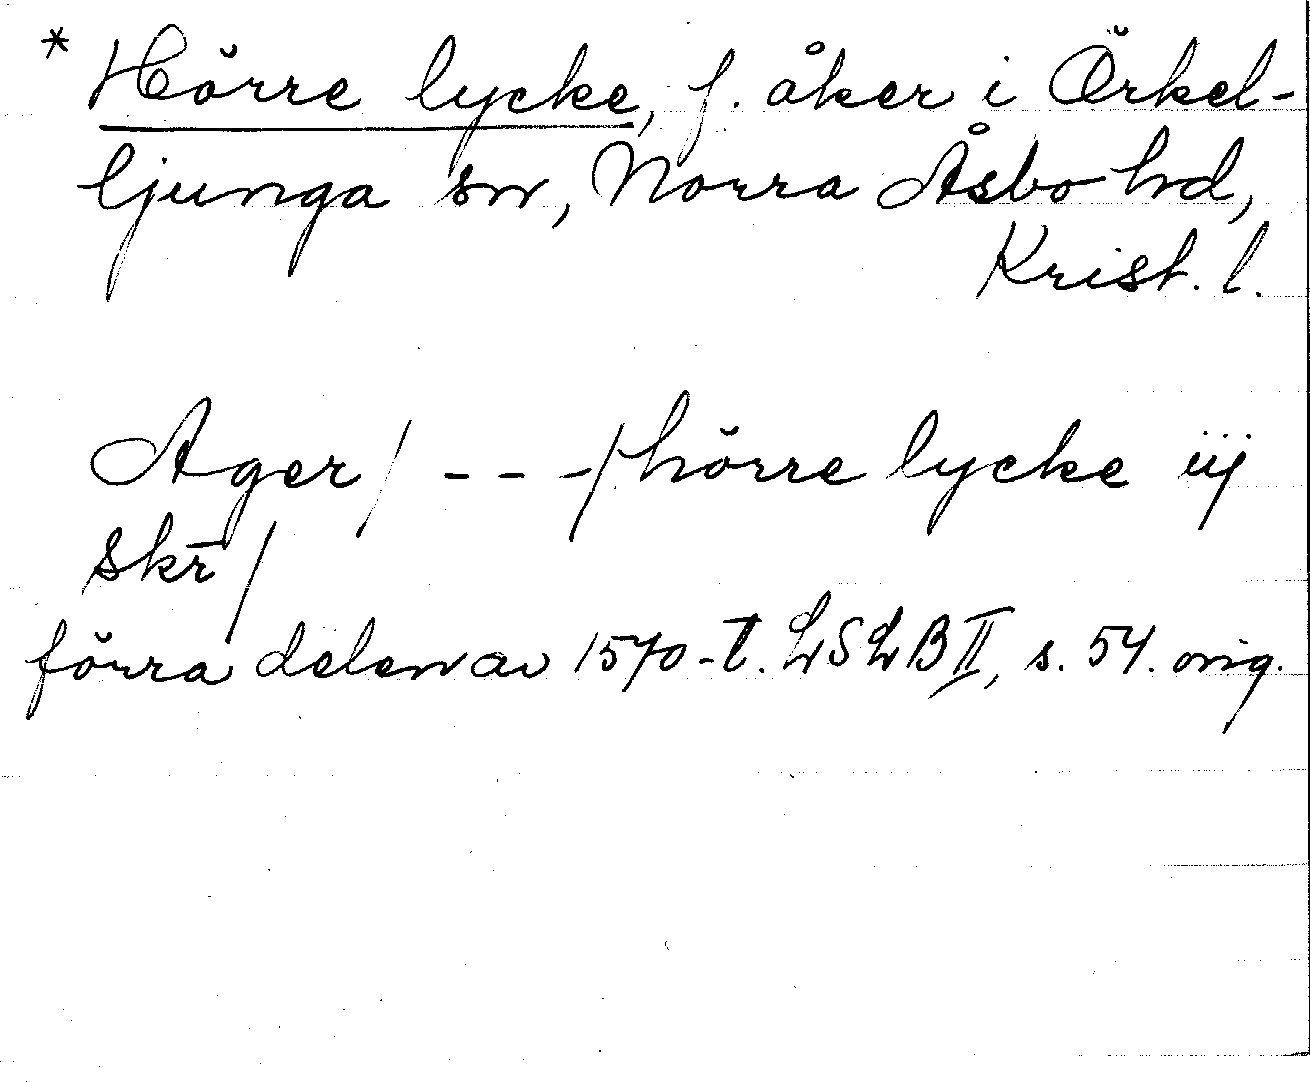 * Hörre lycke, f. åker i Örkel-
ljunga sn, Norra Åsbo hd,
Krist. l.
Ager/ - - -/hörre lycke iij
skr̄/
förra delen av 1570-t. LSLB II, s. 54. orig.